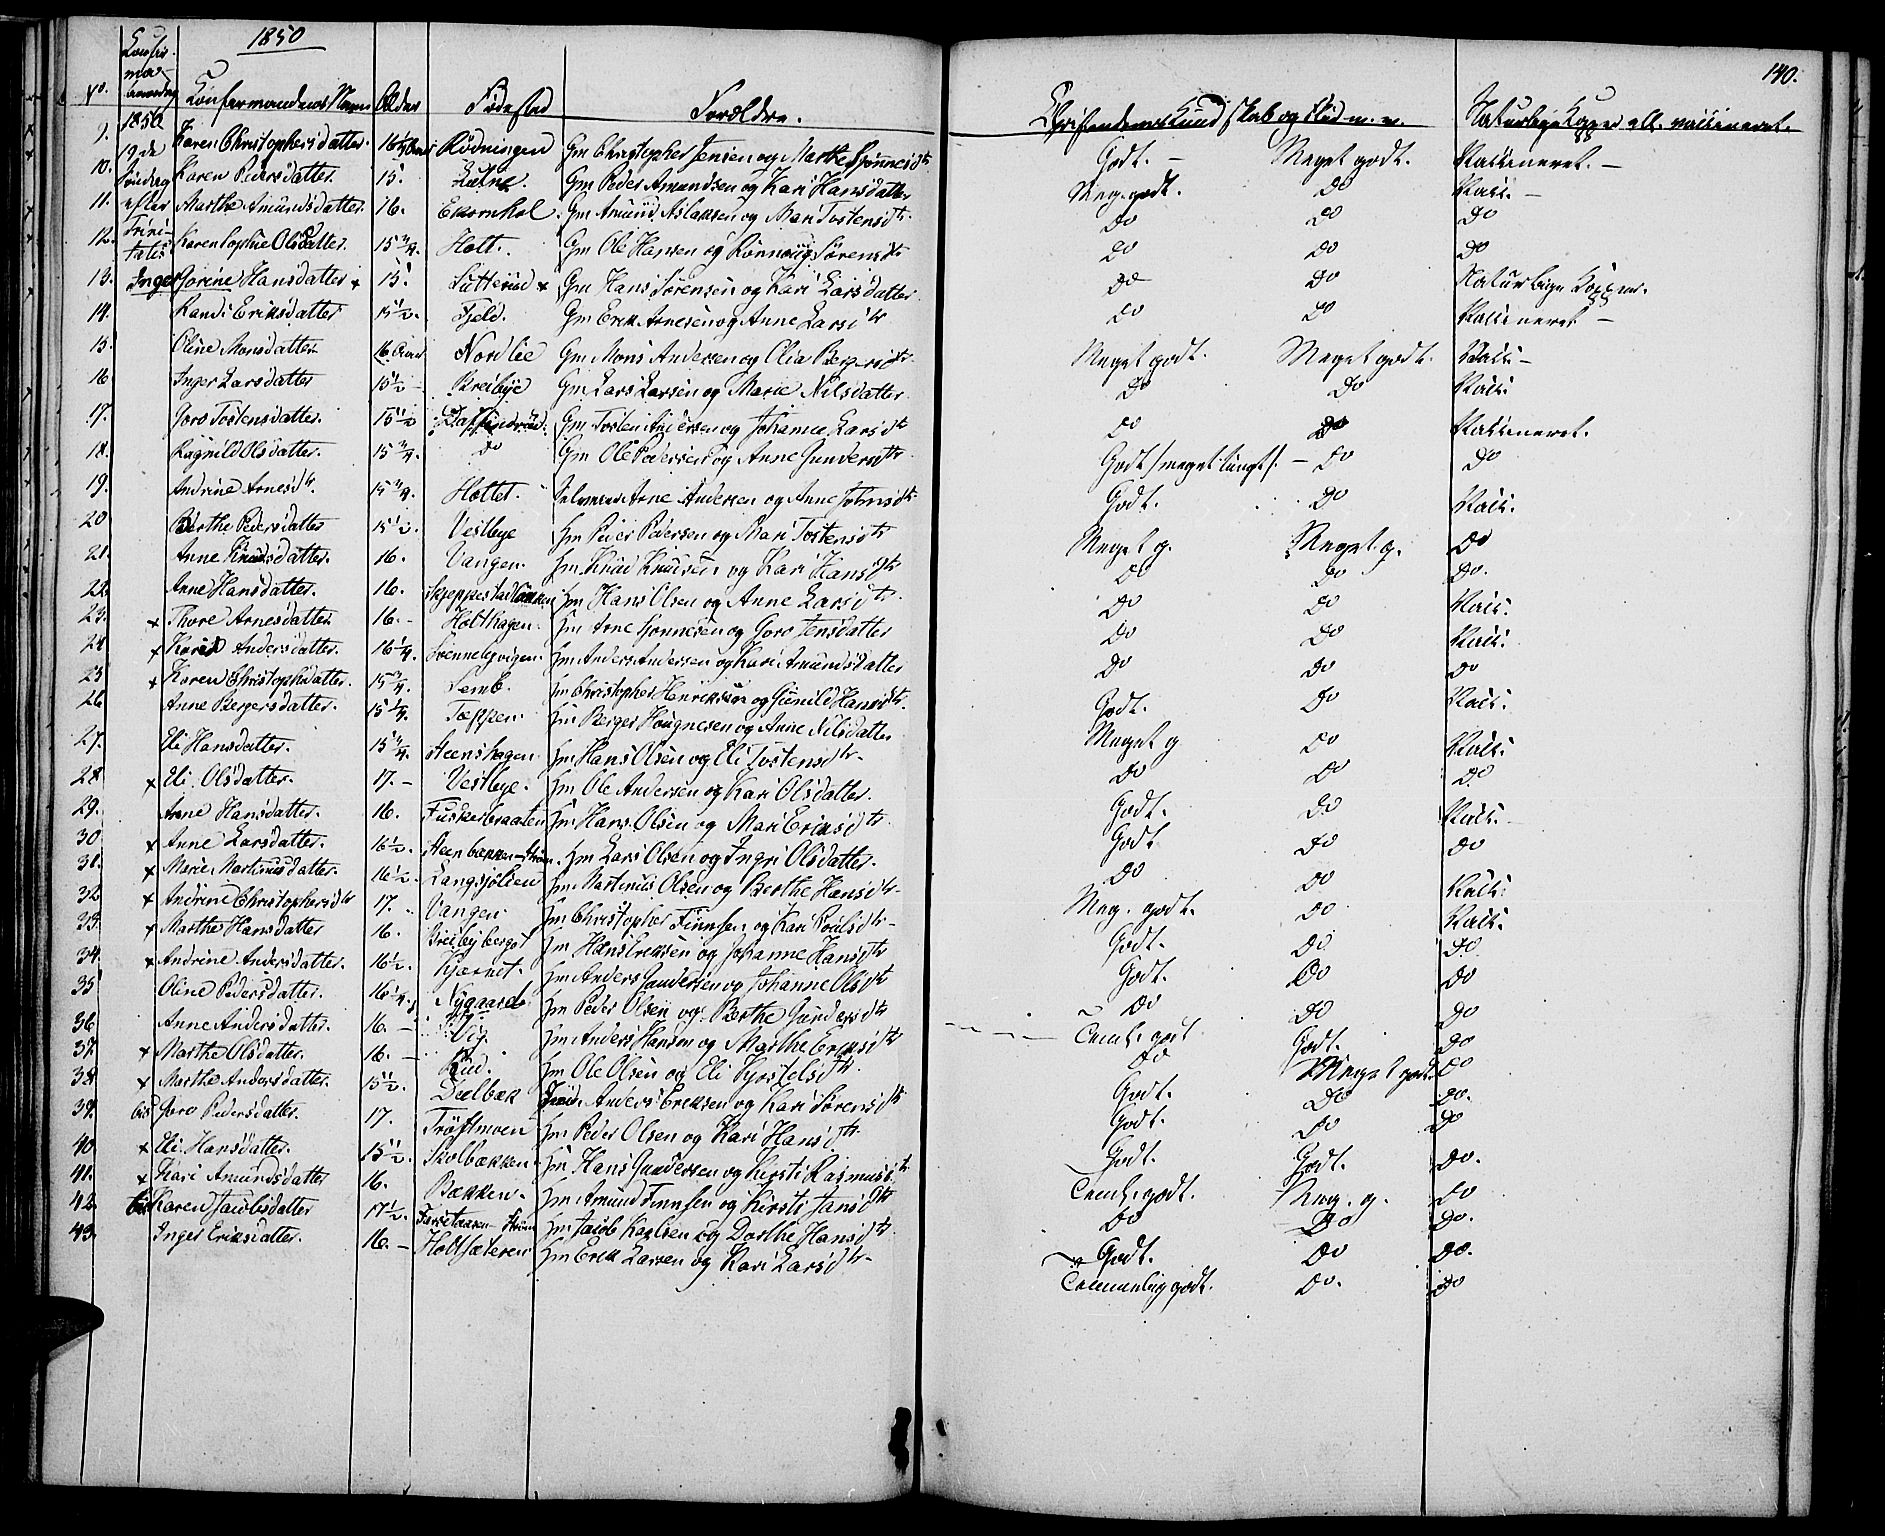 1850
140.
No. Confirmandens Navn Alder Fødested Forældre. Christendoms Kundskab og Flid m. m. Naturlige Kopper ell. vaccineret.
1850 19de Søndag efter Trinitatis
9. Karen Christophersdatter. Rödningen Gm Christopher Jensen og Marthe Godt. – Meget godt. Vaccineret. –
10. Karen Pedersdatter 15. Gm Peder Amundsen og Kari Hansdatter Meg. godt. Do Vacc. –
11. Marthe Amundsdatter. 16. Ekornhol. Gm Amund Aslaksen og Mari Tostensdtr. Do Do Do
12. Karen Sophie Olsdatter. 15 3/4. Holt. Gm Ole Hansen og Rönnaug Sörensdtr Do Do Do
13. Inger Gorine Hansdatter x 15. Sutterud x Gm Hans Sörensen og Kari Larsdatter Do Do Naturlige Kopper.
14. Randi Eriksdatter 15 1/2. Fjeld. Gm Erik Arnesen og Anne Larsdtr Do Do Vaccineret –
15. Oline Monsdatter 16 Nordlie Gm Mons Andersen og Olia Bergersdtr Meget godt. Meget godt. Vacc. –
16. Inger Larsdatter 15 1/2 – Breibye Gm Lars Larsen og Marie Nilsdatter Do Do Vacc.
17. Goro Tostensdatter. 15 1/2 Gm Tosten Andersen og Johanne Larsdtr Do Do Vaccineret.
18. Ragnild Olsdatter. 15 3/4. Do Gm Ole Pedersen og Anne Gundersdtr Godt /meget tungt/. – Do Do
19. Andrine Arnesdtr. 15 3/4. Holtet. Arne Andersen og Anne Johnsdtr Godt. Do Vacc.
20 Berthe Pedersdatter 15 1/2. Vestbye Hm Peder Pedersen og Mari Tostensdtr Meget g. Meget g. Do
21. Anne Knudsdatter. 16. Vangen. Hm Knud Knudsen og Kari Hansdtr Do Do Do.
22. Anne Hansdatter. 16. Skjeppestadbakken Hm Hans Olsen og Anne Larsdtr. Do Do Vacc.
23. x Thore Arnesdatter 16. – Holthagen. Hm Arne og Goro Jensdatter Do Do Vacc.
24 x Andersdatter. 16 1/4. Svennebyvigen. Hm Anders Andersen og Kari Amundsdatter Do Do Do
25 x Karen Christophdatter. 15 3/4. Semb. Hm Christopher Henriksen og Gunild Hansdtr. Godt. Do Vacc.
26 Anne Bergersdatter. 15 1/4. Tæppen. Hm Berger Hougnesen og Anne Nilsdatter Meget g Do Vacc.
27. Eli Hansdatter. 15 3/4. Steenshagen Hm Hans Olsen og Eli Tostensdtr. Do Do Do
28 x Eli Olsdatter. 17. – Vestbye. Hm Ole Andersen og Kari Olsdatter. Godt. Do Vacc.
29. Anne Hansdatter. 16. Fuskerbraaten Hm Hans Olsen og Mari Eriksdtr. Godt Do Do
30 x Anne Larsdatter. 16 1/2. Steenbækken Hm Lars Olsen og Ingri Olsdatter. Do Do Vacc.
31. x Marie Martinusdatter. 16 1/2. Langsjölien Hm Martinus Olsen og Berthe Hansdtr. Meg. godt. Do Vacc.
32 x Andrine Christophersdtr 17. Vangen Hm Christopher Finnsen og Kari Poulsdtr Godt. Do Do
33. x Marthe Hansdatter 16. Breibyberget Hm Hans Eriksen og Johanne Hansdtr Godt. Do Do
34. x Andrine Andersdatter. 16 1/2. Kjærnet. Hm Anders Gundersen og Johanne Olsdtr Do Do Do
35 Oline Pedersdatter. 16 1/4. Nygaard Hm Peder Olsen og Berthe Gundersdtr Temml. godt Godt. Do
36 Anne Andersdatter. 16. – Vig. Hm Anders Hansen og Marthe Eriksdtr Do Meget godt. Do
37. x Marthe Olsdatter. 16. – Rud. Hm Ole Olsen og Eli Kjostelsdtr. Godt. Do Do.
38 x Marthe Andersdatter. 15 1/2. Dælbæk Anders Eriksen og Kari Sörensdtr Godt. Do Do
39. Goro Pedersdatter. 17. Tröftmoen Hm Peder Olsen og Kari Hansdtr. Godt. Godt. Do.
40 x Eli Hansdatter. 15 1/2. Skolbækken Hm Hans Gundersen og Kirsti Rasmusdtr. Temml. godt. Meg. g. Do
41. x Kari Amundsdatter 16. Bækken. Hm Amund Finnsen og Kirsti Jansdtr Do Do Do.
42. Karen Jacobsdatter 17 1/2. Hm Jacob Karlsen og Dorthe Hansdtr Godt. Do Do.
43. Inger Eriksdatter. 16. – Holtsæteren Hm Erik Larsen og Kari Larsdtr. Temmelig godt. Do. Do